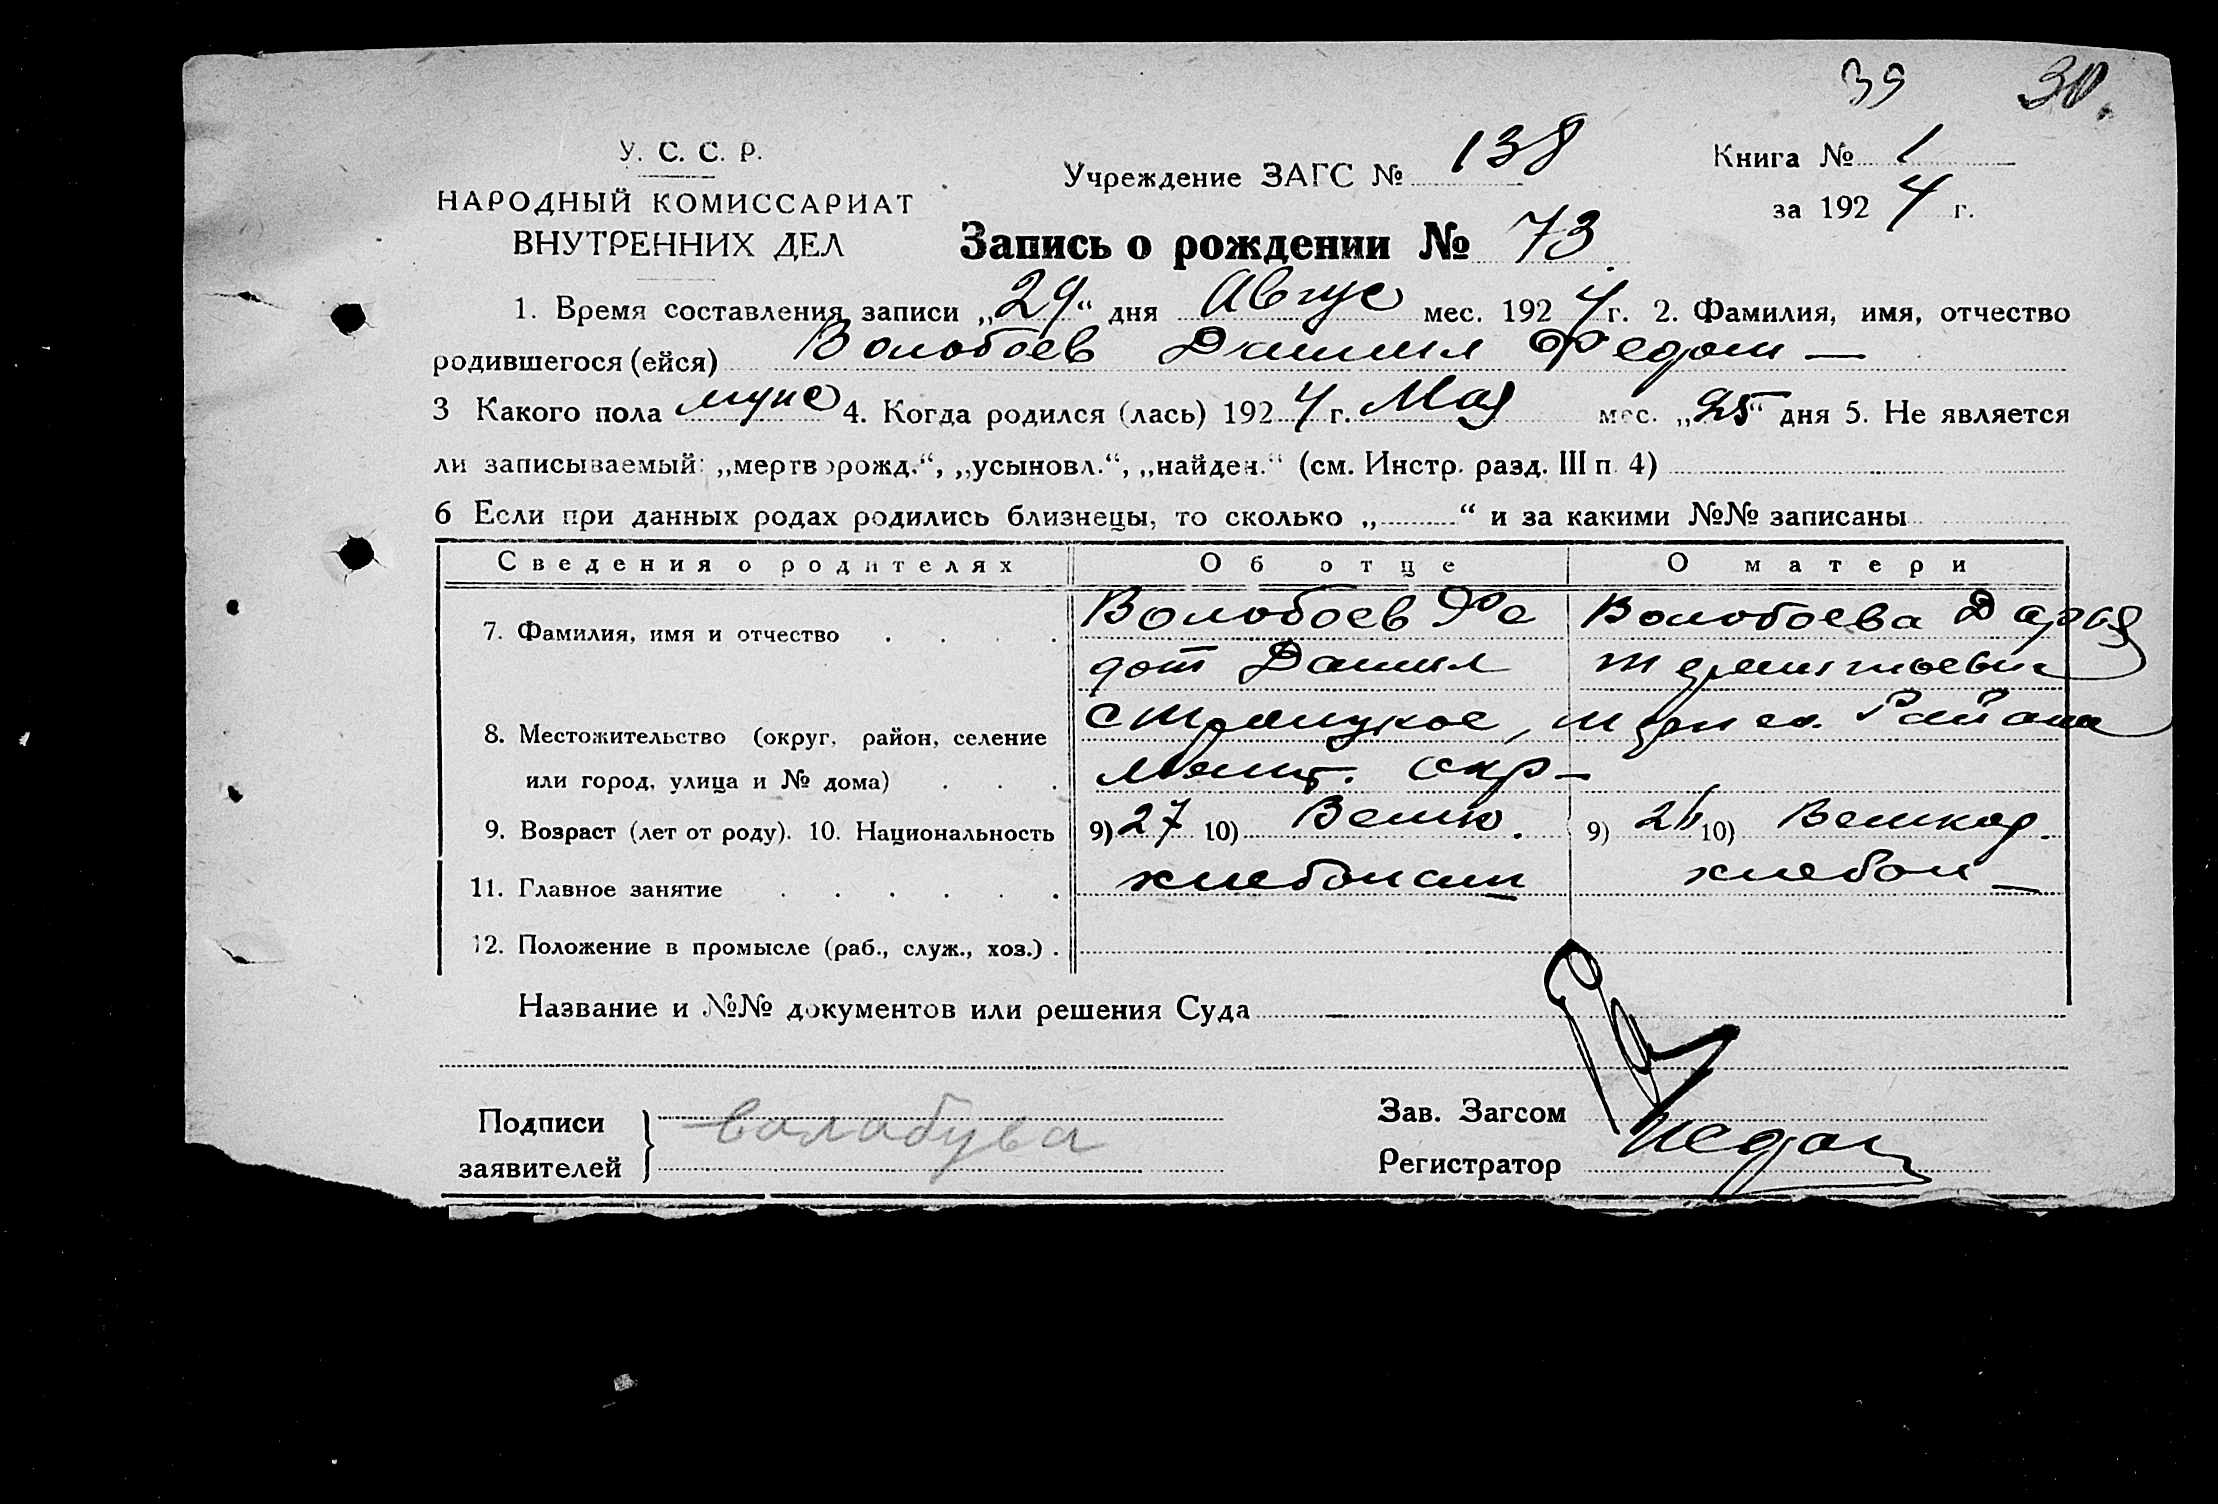 39 30.
У. С. С. Р.
НАРОДНЫЙ КОМИССАРИАТ
ВНУТРЕННИХ ДЕЛ
Учреждение ЗАГС № 138
Книга № 1
за 1924 г.
Запись о рождении № 73
1. Время составления записи „29“ дня Авгус мес. 1924 г. 2. Фамилия, имя, отчество
родившегося (ейся) Волобоев Даниил Федот —
3 Какого пола муж 4. Когда родился (лась) 1924 г. Мая мес. „25“ дня 5. Не является
ли записываемый: „мертворожд.“, „усыновл.“, „найден.“ (см. Инстр. разд. III п. 4)
6 Если при данных родах родились близнецы, то сколько „ “ и за какими №№ записаны
Сведения о родителях Об отце О матери
7. Фамилия, имя и отчество Волобоев Фе Волобоева Дарья
дот Данил
8. Местожительство (округ, район, селение Района
или город, улица и № дома) окр –
9. Возраст (лет от роду). 10. Национальность 9) 27 10) Велик. 9) 26 10) Великор.
11. Главное занятие хлебопаш хлебоп —
12. Положение в промысле (раб., служ., хоз.)
Название и №№ документов или решения Суда —
Подписи
заявителей волабува
Зав. Загсом
Регистратор